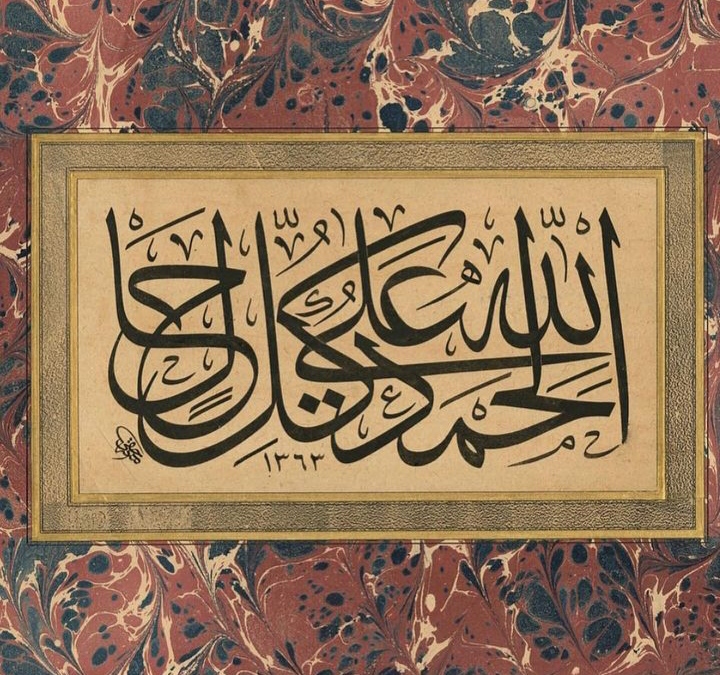 الحمد لله على كل حال
١٣٦٣